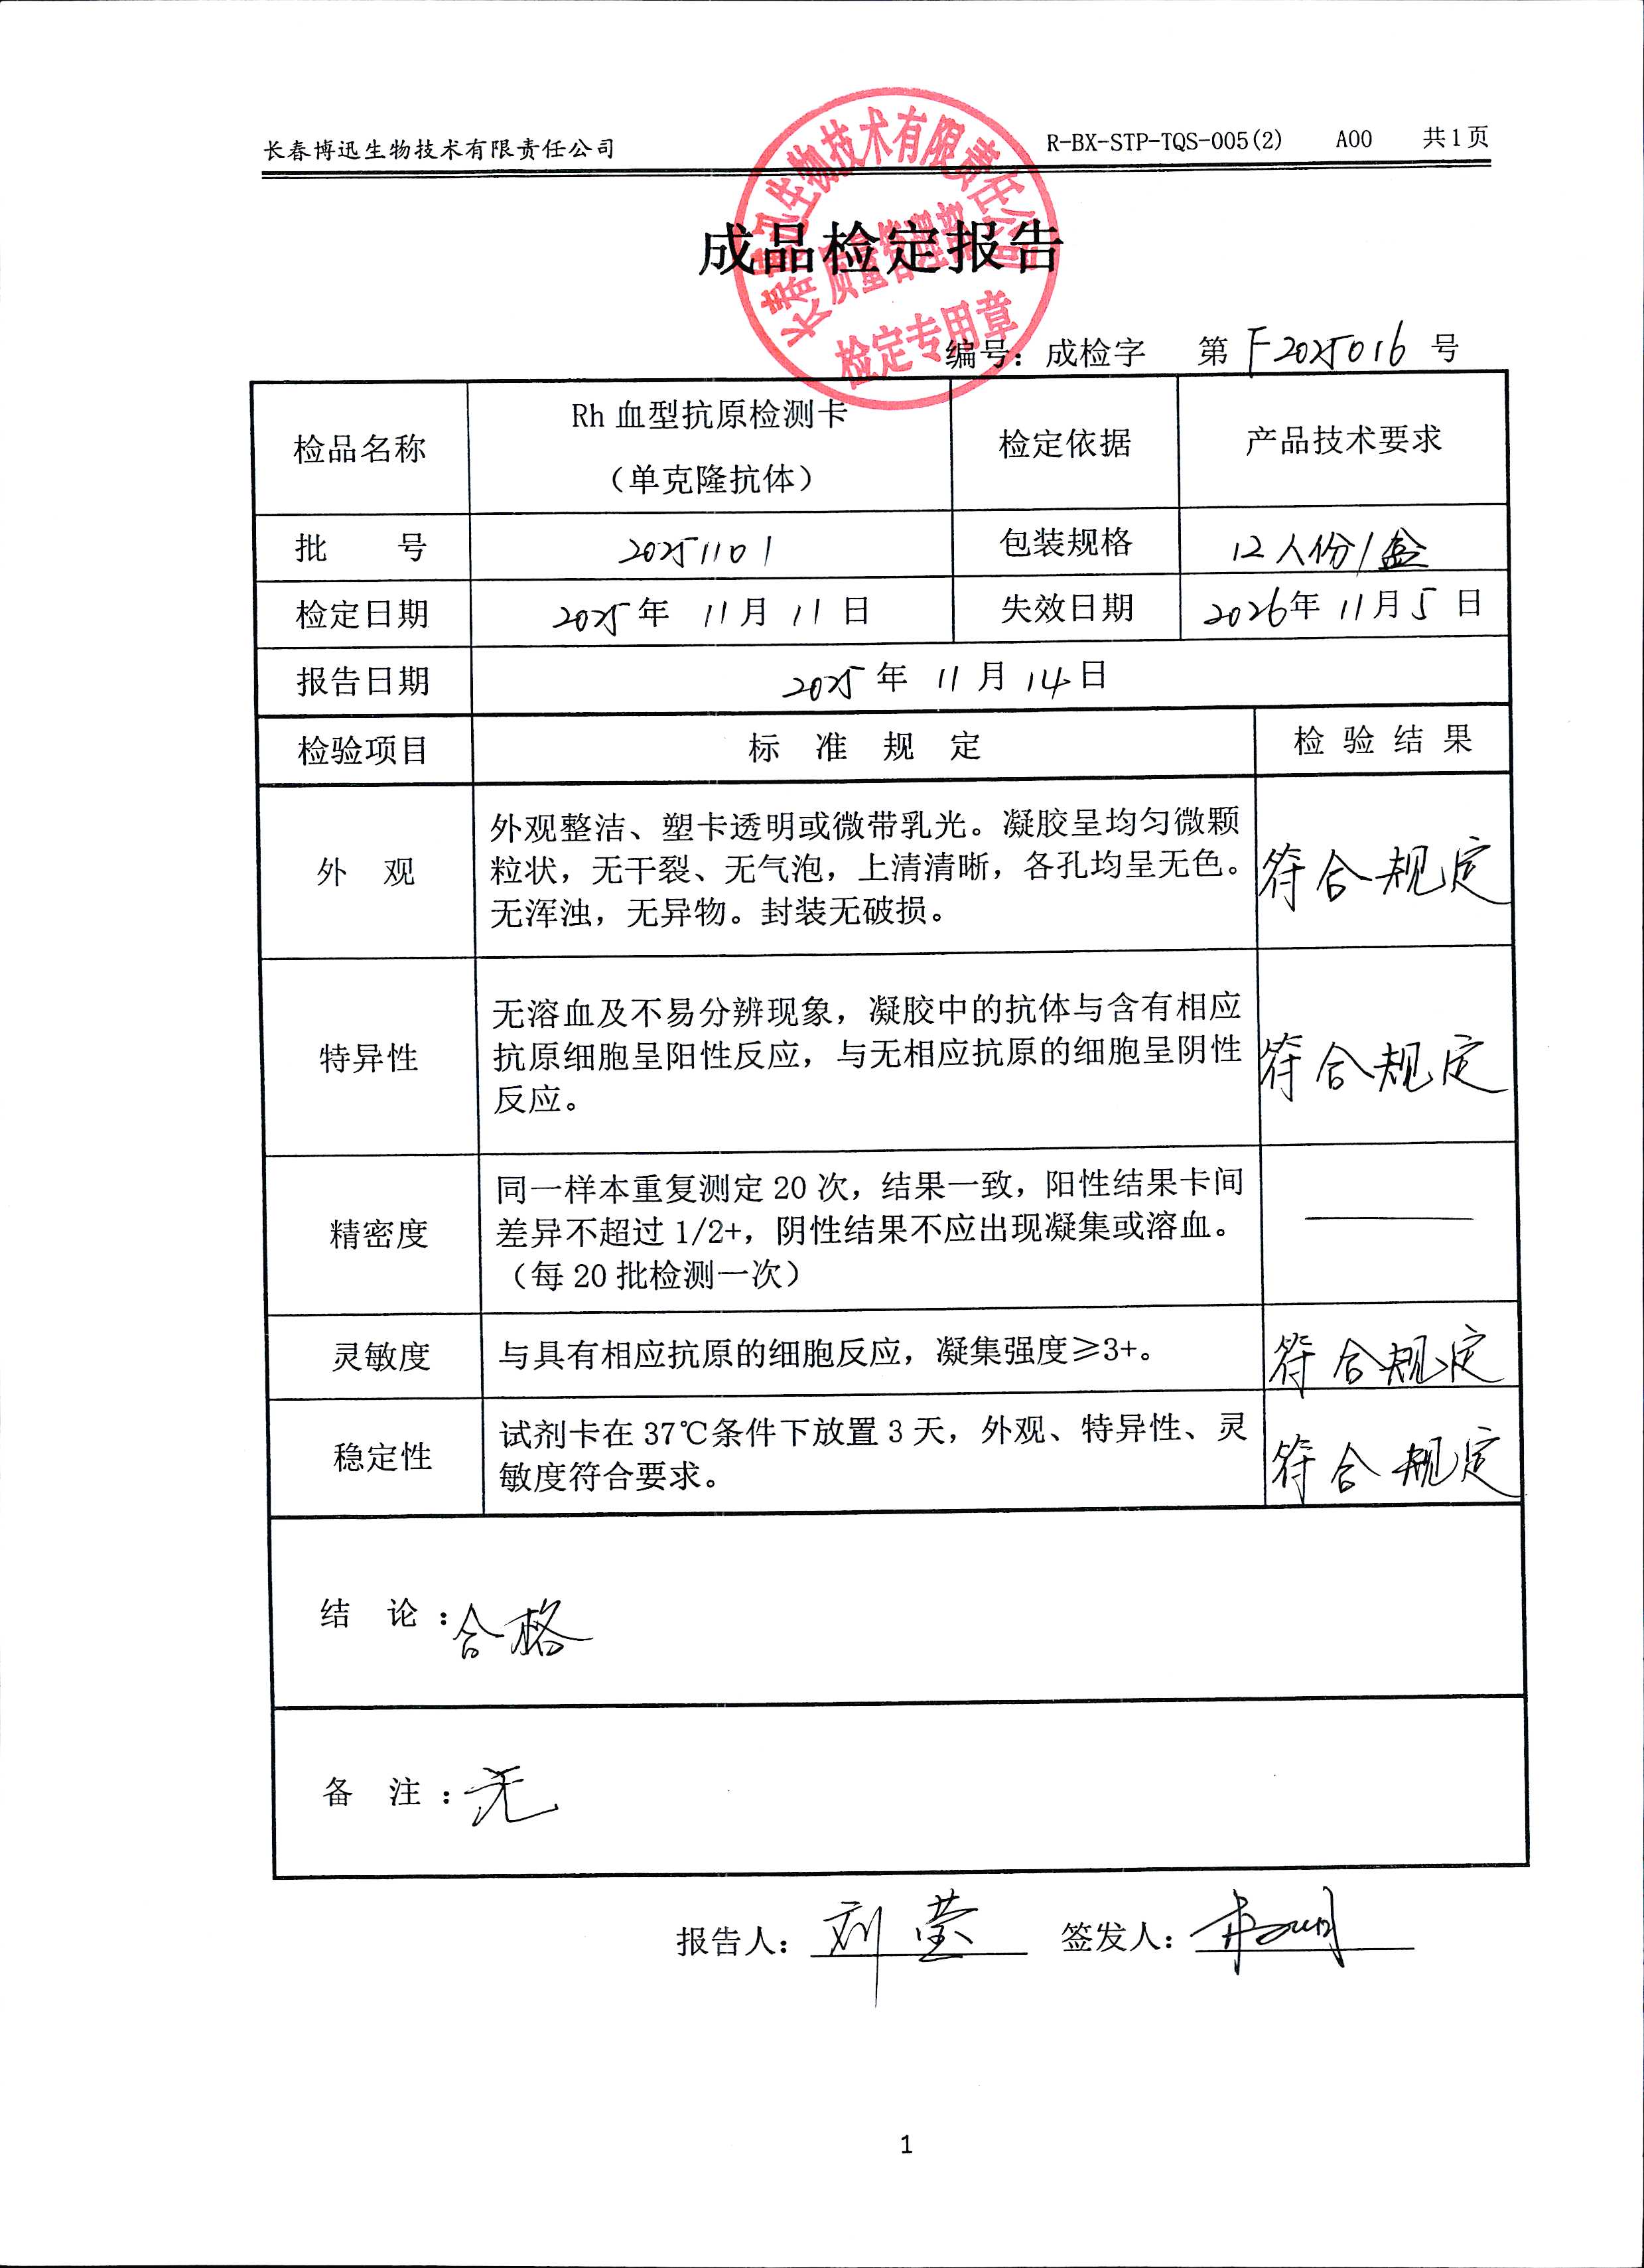 长春博迅生物技术有限责任公司 R-BX-STP-TQS-005(2) A00 共1页
长春博迅生物技术有限责任公司
质量管理部
检定专用章
成品检定报告
编号：成检字 第 F2025016 号
检品名称 Rh 血型抗原检测卡（单克隆抗体） 检定依据 产品技术要求
批 号 20251101 包装规格 12人份/盒
检定日期 2025年 11月 11日 失效日期 2026年 11月5日
报告日期 2025年 11月 14日
检验项目 标 准 规 定 检 验 结 果
外 观
外观整洁、塑卡透明或微带乳光。凝胶呈均匀微颗
粒状，无干裂、无气泡，上清清晰，各孔均呈无色。
无浑浊，无异物。封装无破损。
符合规定
特异性
无溶血及不易分辨现象，凝胶中的抗体与含有相应
抗原细胞呈阳性反应，与无相应抗原的细胞呈阴性
反应。
符合规定
精密度
同一样本重复测定 20 次，结果一致，阳性结果卡间
差异不超过 1/2+，阴性结果不应出现凝集或溶血。
（每 20 批检测一次）
——
灵敏度 与具有相应抗原的细胞反应，凝集强度≥3+。 符合规定
稳定性
试剂卡在 37℃条件下放置 3 天，外观、特异性、灵
敏度符合要求。
符合规定
结 论：合格
备 注：无
报告人：刘莹 签发人：
1